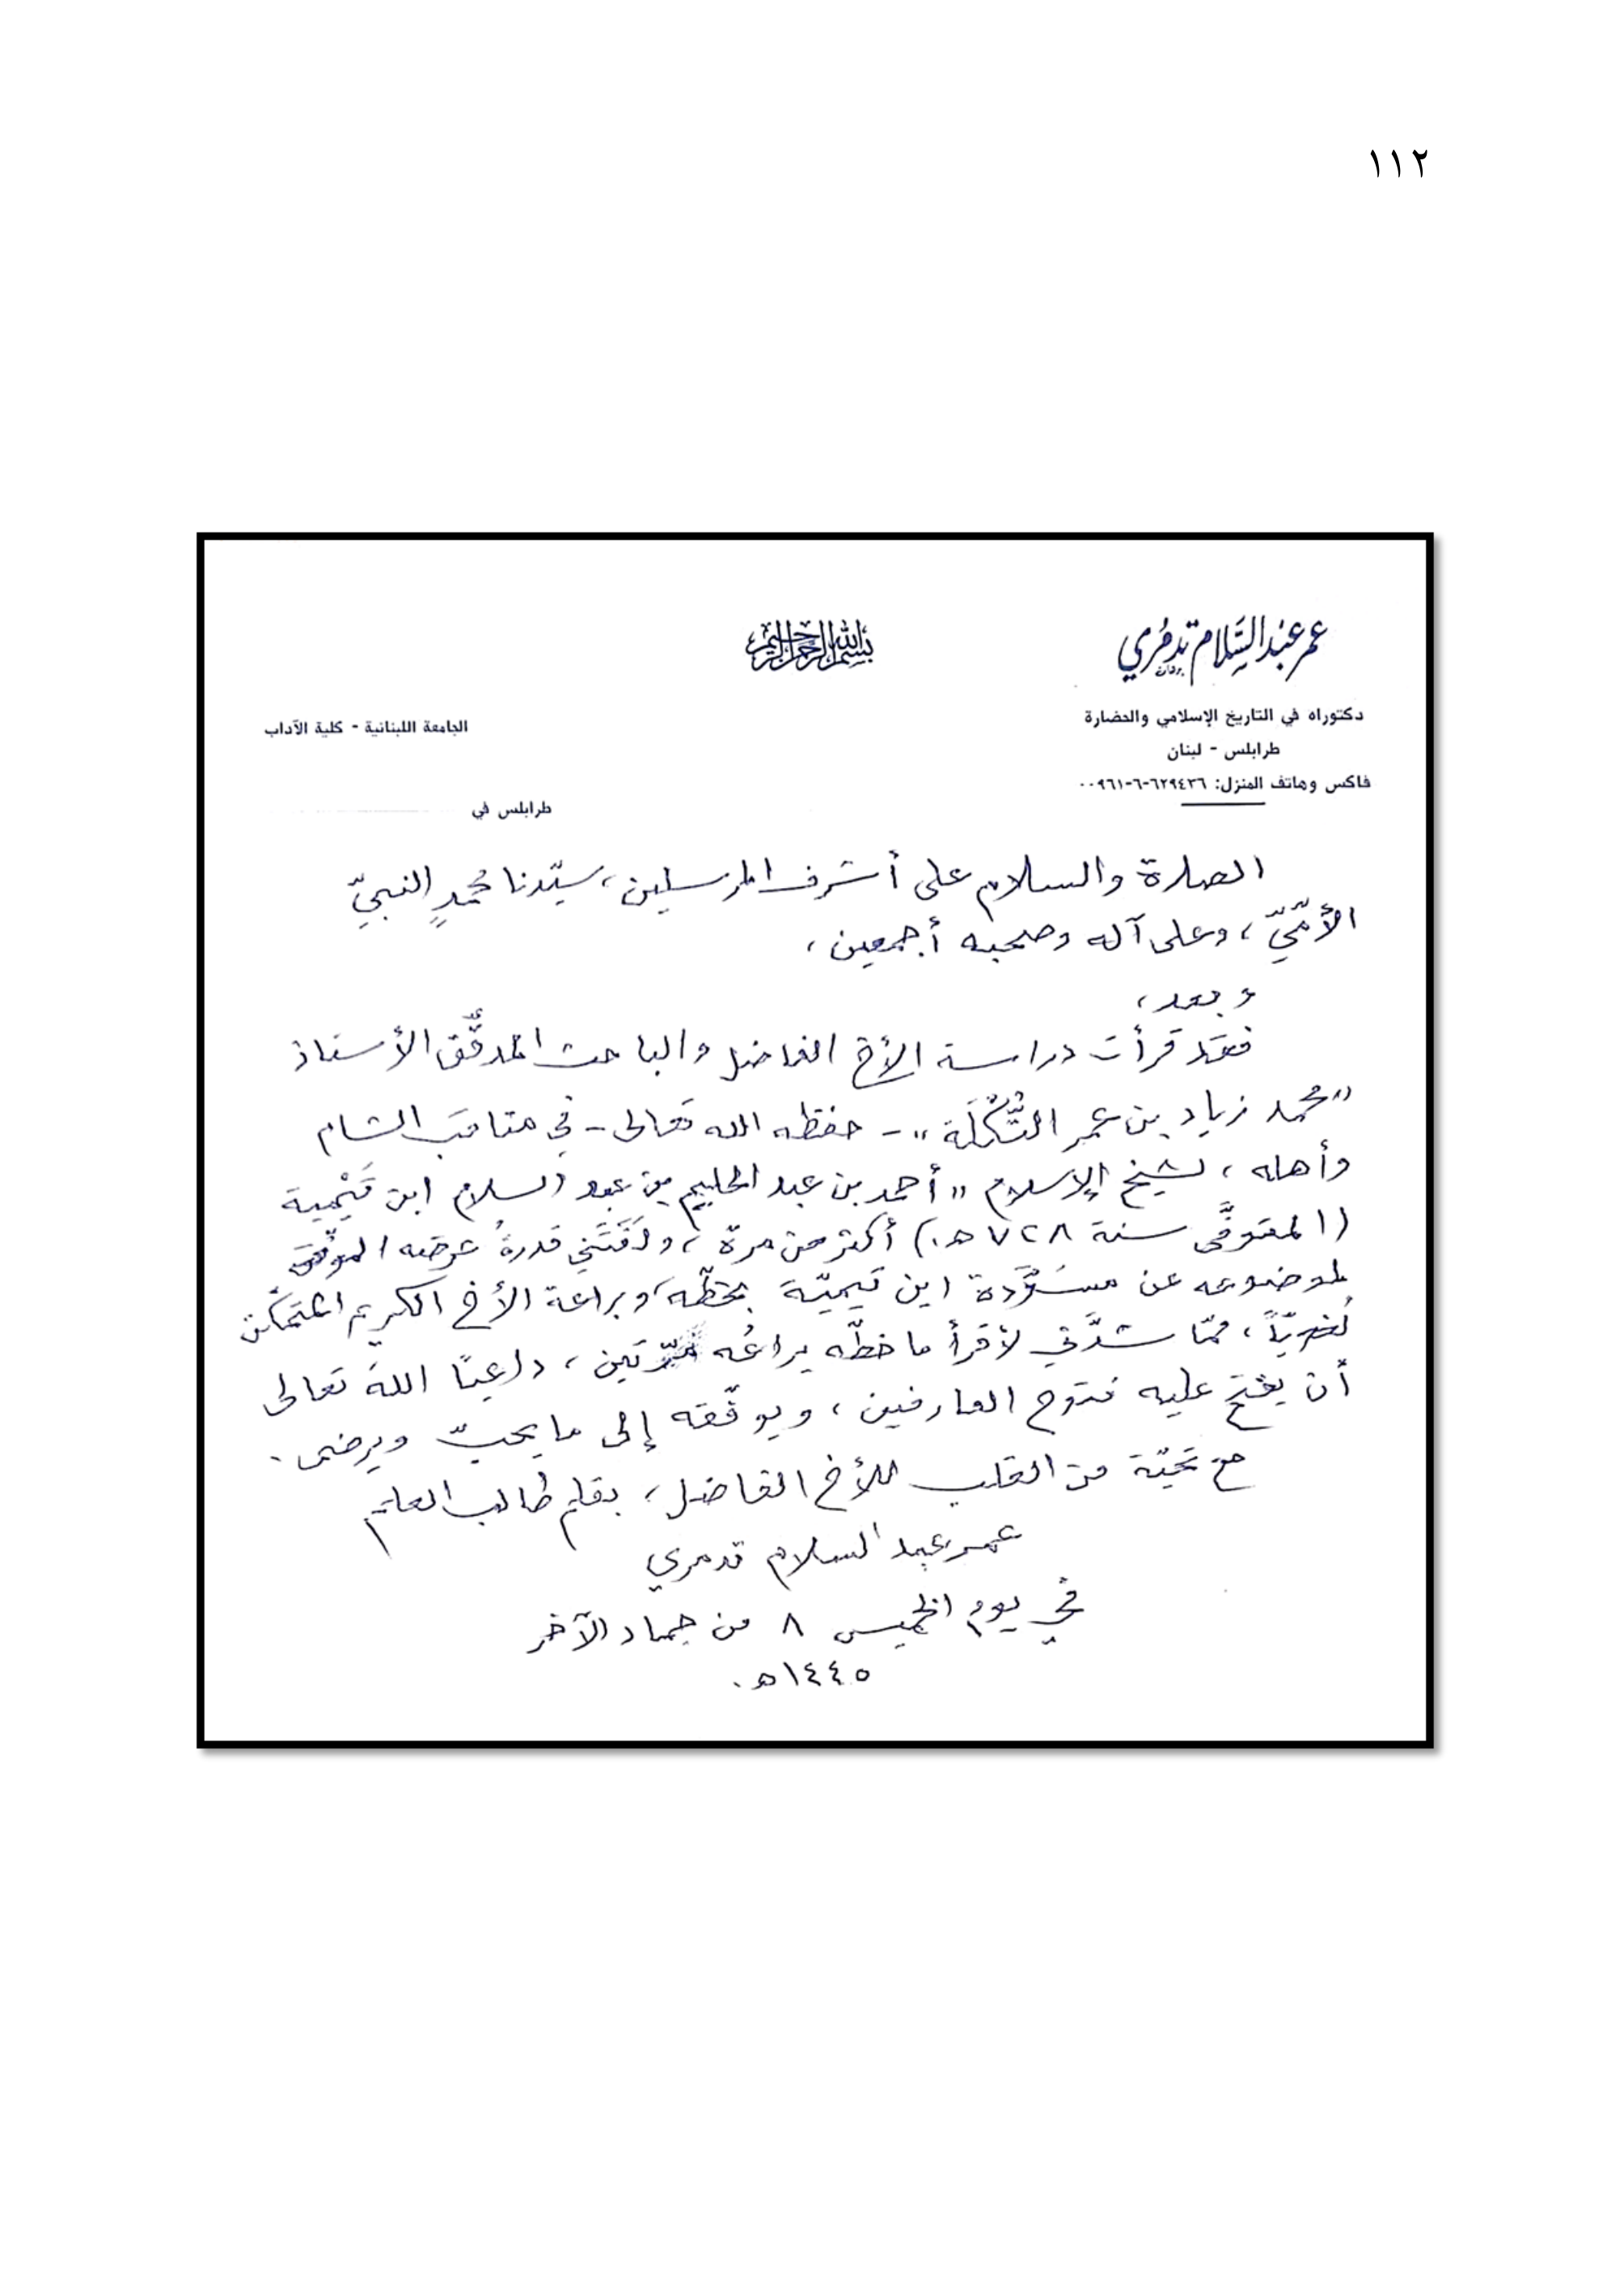 ١١٢
عمر عبد السَّلام تدمُري
بسم الله الرحمن الرحيم
دكتوراه في التاريخ الإسلامي والحضارة
طرابلس - لبنان
فاكس وهاتف المنزل: ٦٢٩٤٣٦-٦-٠٠٩٦١
الجامعة اللبنانية - كلية الآداب
طرابلس في
الصلاة والسلام على أشرف المرسلين، سيّدنا محمدٍ النبيّ
الأمّيّ، وعلى آله وصحبه أجمعين،
وبعد،
فقد قرأت دراسة الأخ الفاضل والباحث المدقّق الأستاذ
"محمد زياد بن عمر التُّكْلَة" - حفظه الله تعالى - في مناقب الشام
وأهله، لشيخ الإسلام "أحمد بن عبد الحليم بن عبد السلام ابن تَيْمية
(المتوفَّى سنة ٧٢٨ هـ.) أكثر من مرة، ولَفَتَني قدرةُ عرضه الموثّق
لموضوعه عن مسَوَّدة ابن تيميّة بخطّه، وبراعة الأخ الكريم المتمكّن
لُغويّاً، ممّا شدَّني لأقرأ ما خطّه يراعُه مرّتين، داعيًا اللهَ تعالى
أن يفتح عليه فتوح العارفين، ويوفّقه إلى ما يحبّ ويرضى.
مع تحيّة من القلب للأخ الفاضل، بقلم طالب العلم
عمر عبد السلام تدمري
في يوم الخميس ٨ من جماد الآخر
١٤٤٥هـ.